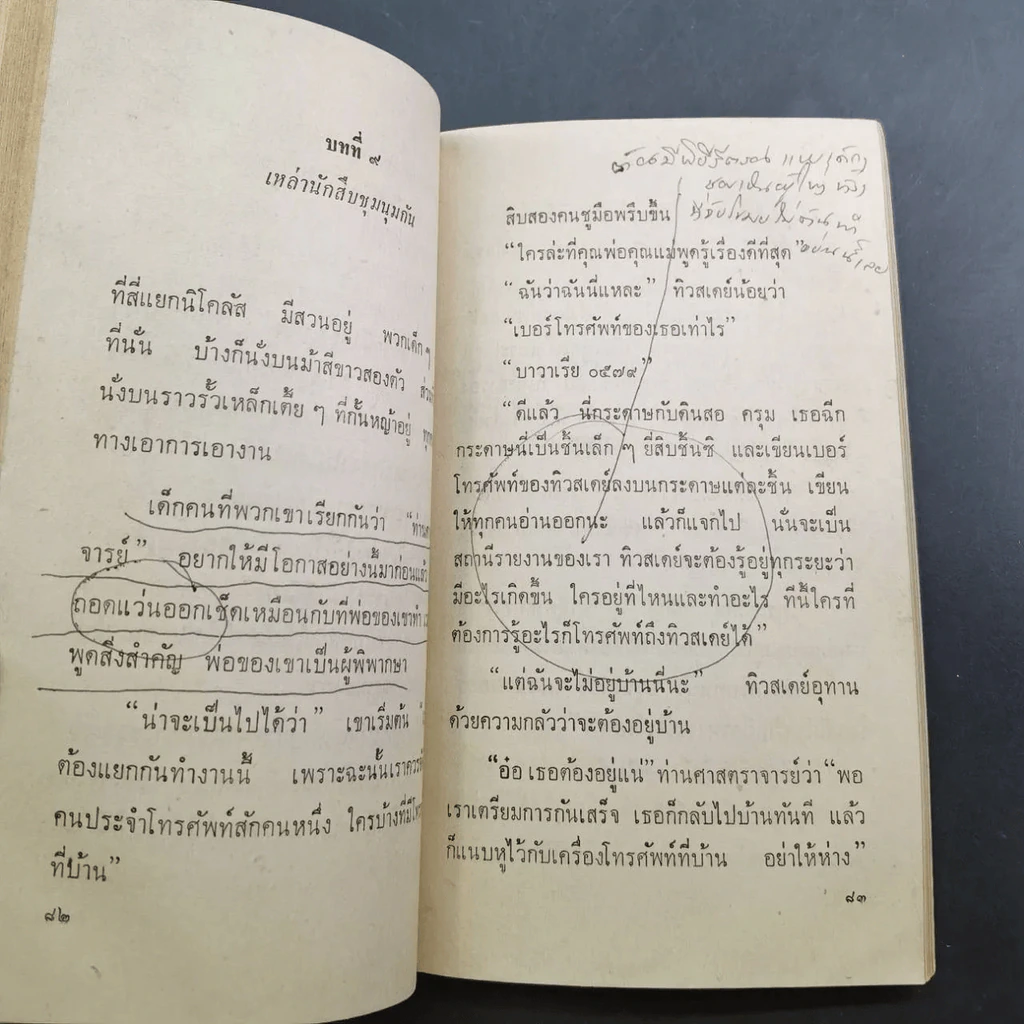 บทที่ ๙
เหล่านักสืบชุมนุมกัน
ที่สี่แยกนิโคลัส มีสวนอยู่ พวกเด็ก ๆ
ที่นั่น บ้างก็นั่งบนม้าสีขาวสองตัว
นั่งบนราวรั้วเหล็กเตี้ย ๆ ที่กั้นหญ้าอยู่
ทางเอาการเอางาน
เด็กคนที่พวกเขาเรียกกันว่า
จารย์” อยากให้มีโอกาสอย่างนี้มาก่อนแล้ว
ถอดแว่นออกเช็ดเหมือนกับที่พ่อของเขาทำ
พูดสิ่งสำคัญ พ่อของเขาเป็นผู้พิพากษา
“น่าจะเป็นไปได้ว่า” เขาเริ่มต้น
ต้องแยกกันทำงานนี้ เพราะฉะนั้นเรา
คนประจำโทรศัพท์สักคนหนึ่ง ใครบ้างที่มี
ที่บ้าน”
๘๒
สิบสองคนชูมือพรึบขึ้น
“ใครล่ะที่คุณพ่อคุณแม่พูดรู้เรื่องดีที่สุด”
“ฉันว่าฉันนี่แหละ” ทิวสเดย์น้อยว่า
“เบอร์โทรศัพท์ของเธอเท่าไร”
“บาวาเรีย ๐๕๗๙”
“ดีแล้ว นี่กระดาษกับดินสอ ครุม เธอฉีก
กระดาษนี่เป็นชิ้นเล็ก ๆ ยี่สิบชิ้นซิ และเขียนเบอร์
โทรศัพท์ของทิวสเดย์ลงบนกระดาษแต่ละชิ้น เขียน
ให้ทุกคนอ่านออกนะ แล้วก็แจกไป นั่นจะเป็น
สถานีรายงานของเรา ทิวสเดย์จะต้องรู้อยู่ทุกระยะว่า
มีอะไรเกิดขึ้น ใครอยู่ที่ไหนและทำอะไร ทีนี้ใครที่
ต้องการรู้อะไรก็โทรศัพท์ถึงทิวสเดย์ได้”
“แต่ฉันจะไม่อยู่บ้านนี่นะ” ทิวสเดย์อุทาน
ด้วยความกลัวว่าจะต้องอยู่บ้าน
“อ๋อ เธอต้องอยู่แน่” ท่านศาสตราจารย์ว่า “พอ
เราเตรียมการกันเสร็จ เธอก็กลับไปบ้านทันที แล้ว
ก็แนบหูไว้กับเครื่องโทรศัพท์ที่บ้าน อย่าให้ห่าง”
๘๓